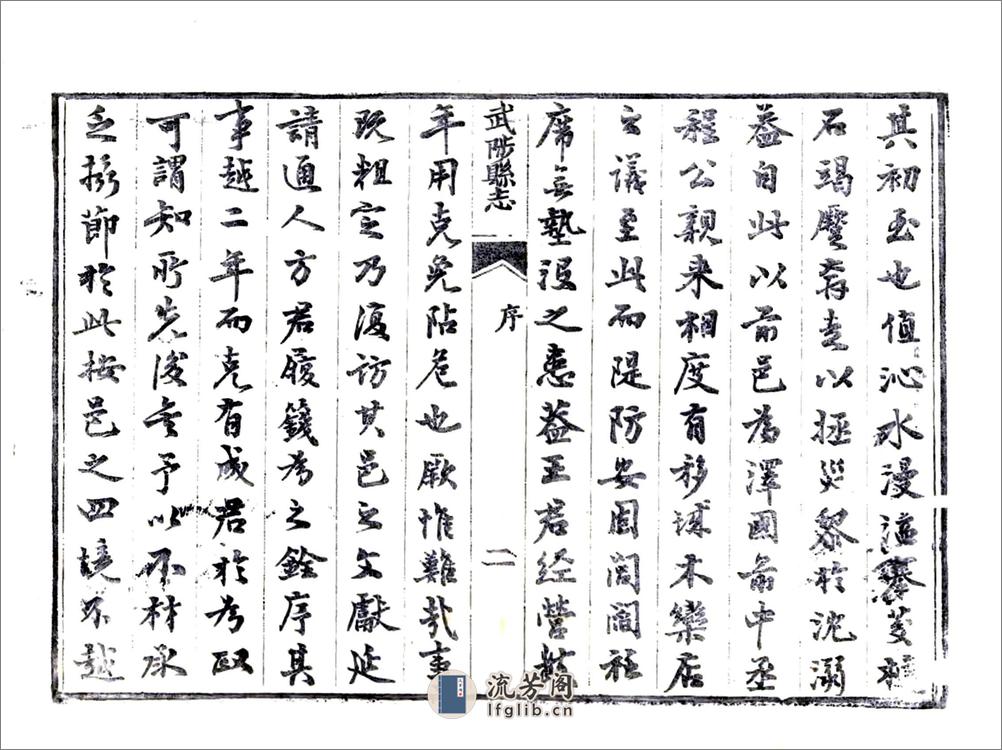 其初至也值沁水漫溢搴茭楗
石竭蹷奔走以拯災黎於沈溺
蓋自此以前邑為澤國前中丞
程公親来相度有移城木欒店
之議至此而隄防安固閭閻衽
席無墊没之患蓋王君经營數
武陟縣志
序
二
年用克免阽危也厥惟難哉事
既粗定乃復访其邑之文獻延
請通人方君履籛為之銓序其
事越二年而克有成君於為政
可謂知所先後矣予以不材承
乏擁節於此按邑之四境不越
流芳阁
lfglib.cn